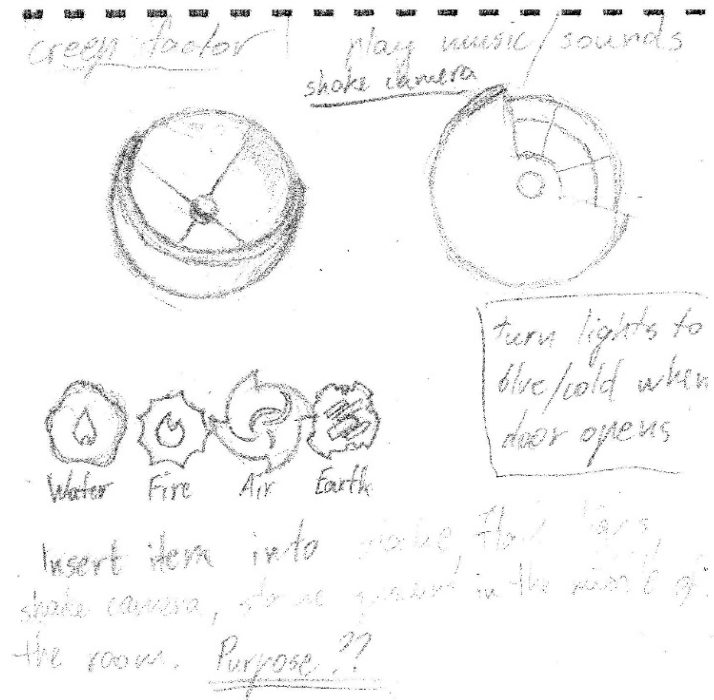 creep factor
play music/sounds
shake camera
turn lights to
blue/cold when
door opens
Water Fire Air Earth
Insert item into
shake camera, in the of
the room. Purpose??